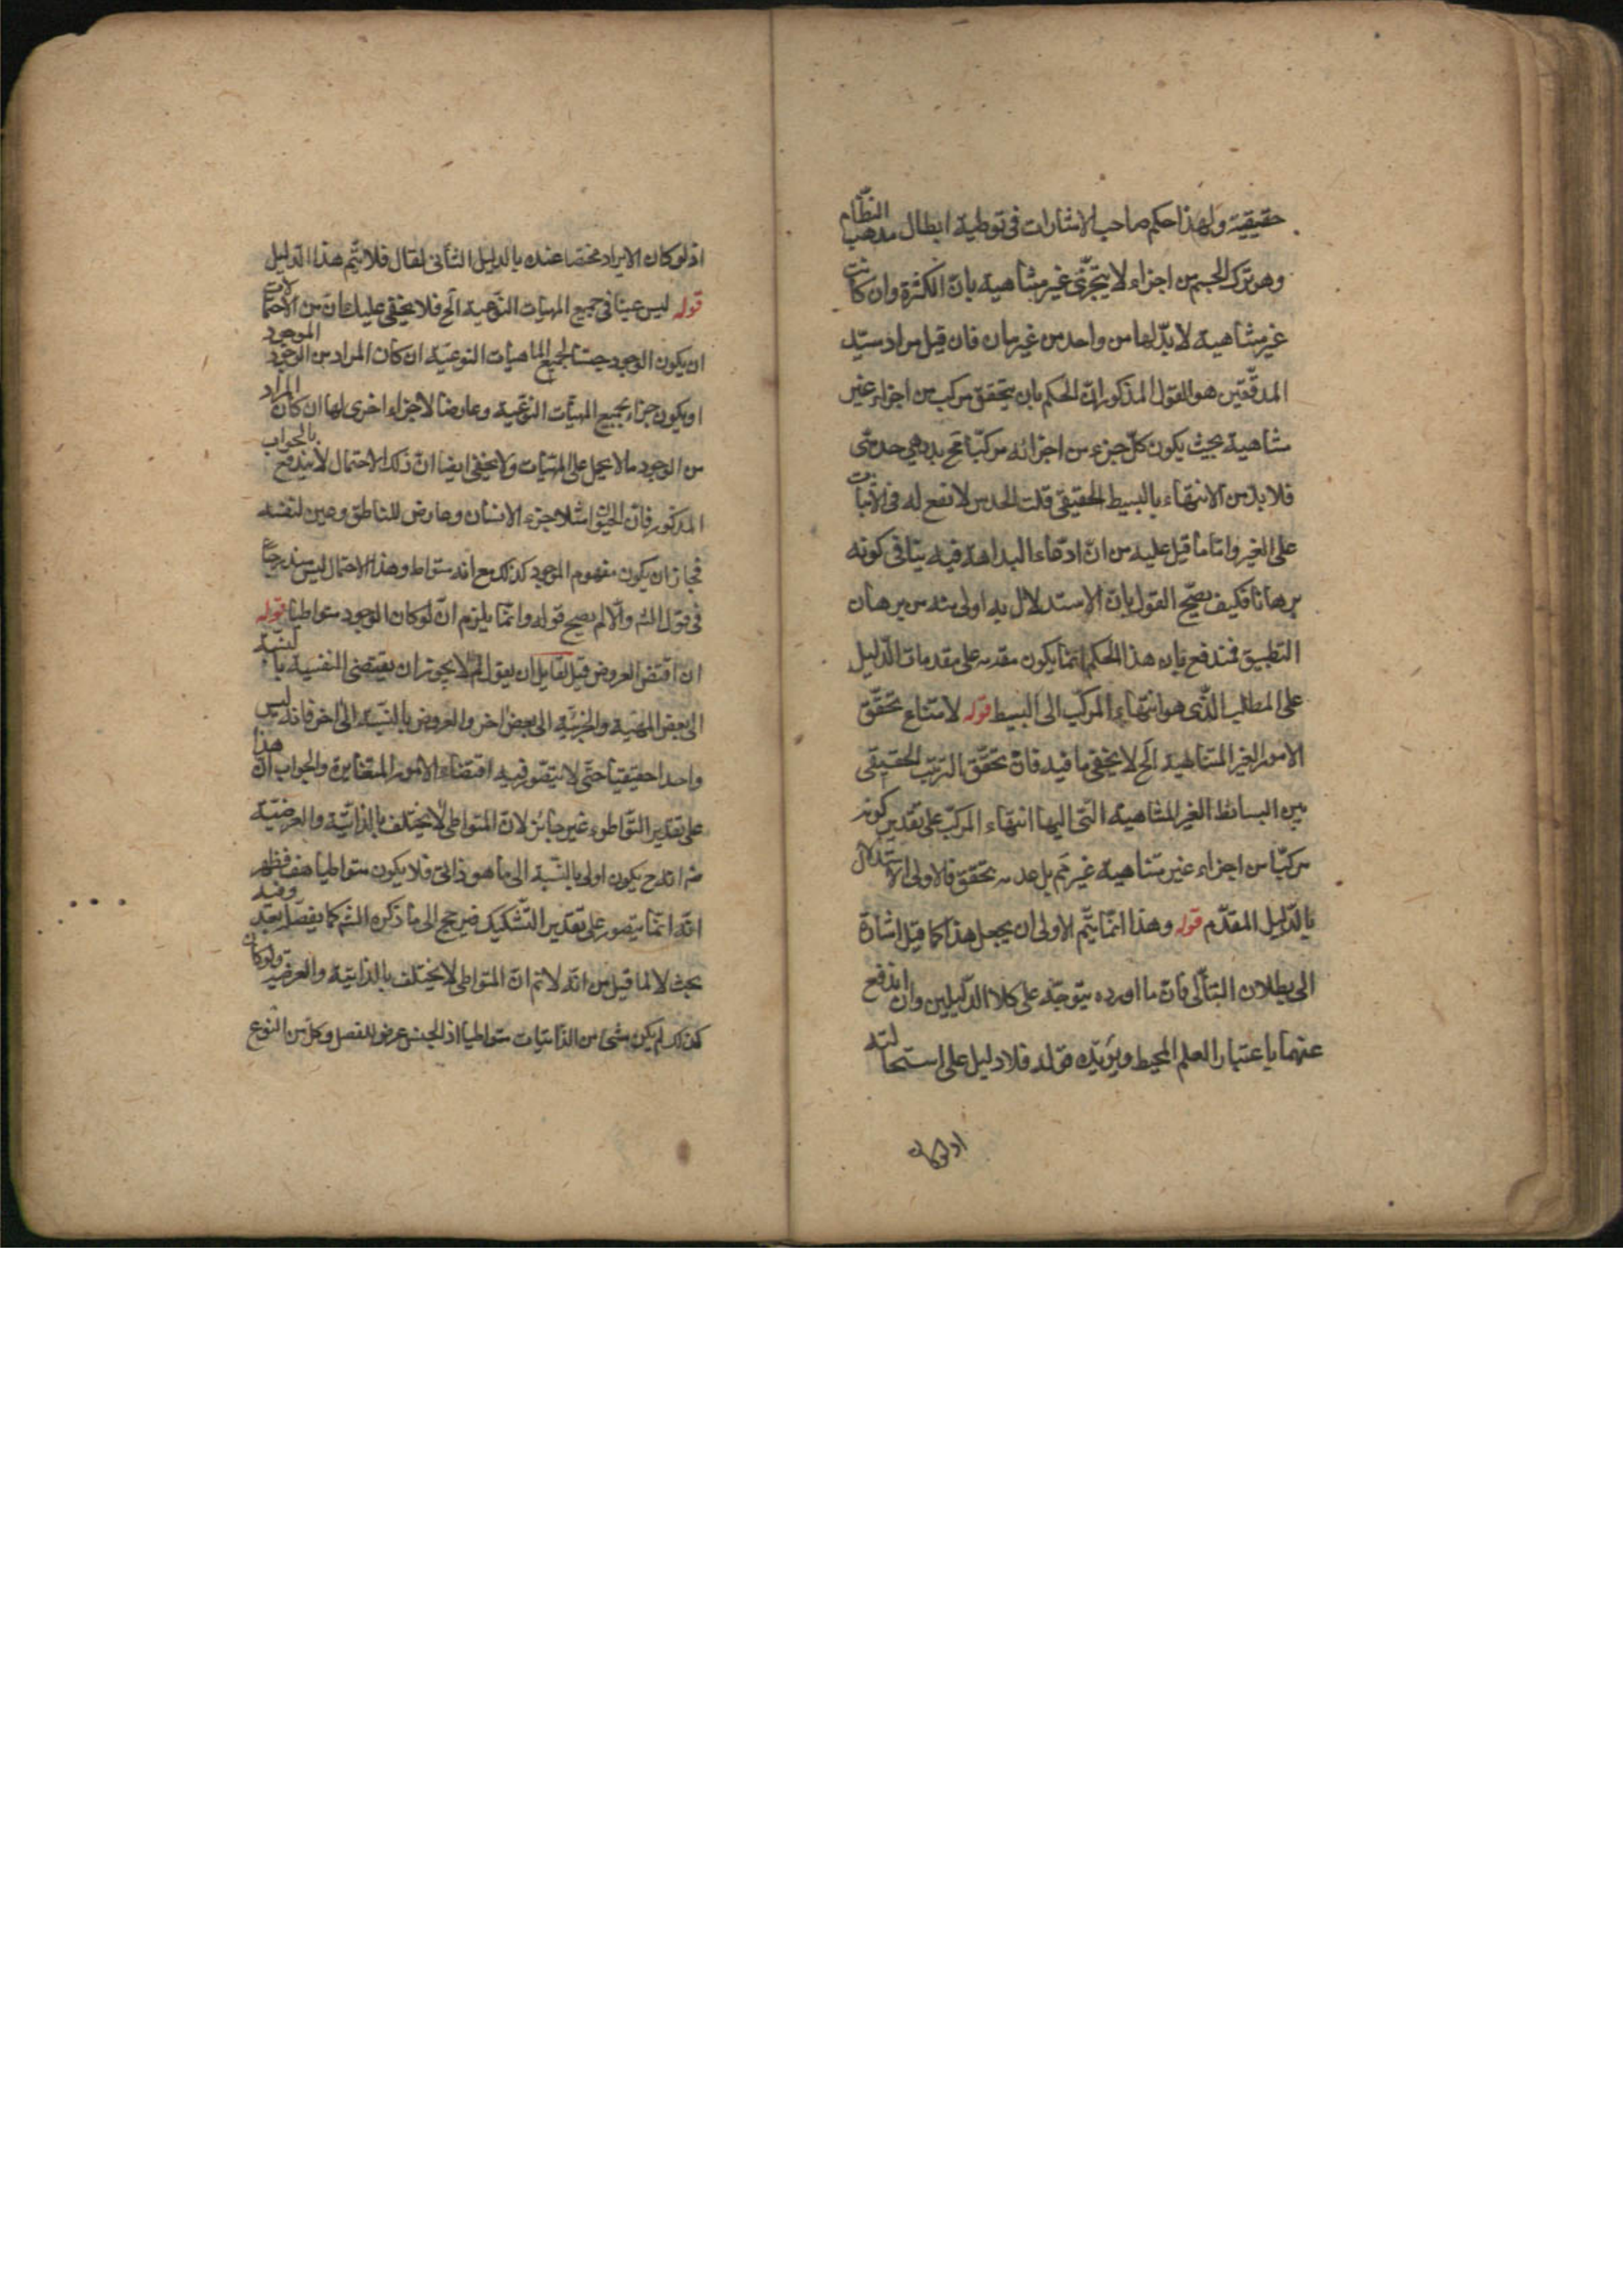 حقيقية ولهذا حكم صاحب الاشارات فى توطية ابطال مذهب النظّام
وهو تركب الجسم من اجزاء لا يتجزّى غير متناهية بان الكثرة وان كانت
غير متناهية لا بدّ لها من واحد من غير بيان فان قيل مراد سيّد
المدقّقين هو القول المذكور انّ الحكم بان يتحقق مركب من اجزاء غير
متناهية بحيث يكون كلّ جزء من اجزائه مركبّا مح بديهي حدسى
فلا بدّ من الانتهاء بالبسيط الحقيقى قلت الحدس لا نفع له فى الاثبات
على الغير وامّا ما قيل عليه من انّ ادّعاء البداهة فيه ينافى كونه
برهانا فكيف يصحّ القول بان الاستدلال به اولى منه من برهان
التطبيق فمندفع بان هذا الحكم انما يكون مقدمه على مقدمات الدّليل
على المطلب الذّى هو انتهاء المركّب الى البسيط قوله لامتناع تحقّق
الامور الغير المتناهية الخ لا يخفى ما فيه فانّ تحقّق الترتب الحقيقى
بين البسائط الغير المتناهية الّتى اليها انتهاء المركّب على تقدير كونه
مركّبا من اجزاء غير متناهية غير تم بل عدمه تحقق فالاولى الاستدلال
بالدّليل المقدّم قوله وهذا انمّا يتّم الاولى ان يجعل هذا كما قيل اشارة
الى بطلان التّالى فانّ ما اورده يتوجّه على كلا الدّليلين وان اندفع
عنهما باعتبار العلم المحيط ويؤيّده قوله فلا دليل على استحالته
اذ لو كان
اذ لو كان الايراد مختصا عنده بالدليل الثانى لقال فلا يتّم هذا الدّليل
قوله ليس عينا فى جميع المهيّات النّوعية الخ فلا يخفى عليك ان من الاحتمالات
ان يكون الوجود جنسا لجميع الماهيات النوعيّة ان كان المراد من الوجود الموجود
او يكون جزء لجميع المهيّات النّوعية وعارضا لاجزاء اخرى لها ان كان المراد
من الوجود ما لا يحمل على المهيّات ولا يخفى ايضا انّ ذلك الاحتمال لا يندفع بالجواب
المذكور فانّ الحيوان مثلا جزء الانسان وعارض للناطق وعين لنفسه
فجاز ان يكون مفهوم الوجود كذلك مع انّه متواط وهذا الاحتمال ليس مندرجا
فى قول الش والّا لم يصح قوله وانمّا يلزم انّ لو كان الوجود متواطيا قوله
ان اقتضى العروض قيل لقايل ان يقول لم لا يجوز ان يقتضى النفسية بالنسبة
الى بعض المهيّة والجزئيّة الى بعض اخر والعروض بالنّسبة الى اخر فانه ليس
واحدا حقيقيّا حتّى لا يتصّور فيه اقتضاء الامور المتغايرة والجواب ان هذا
على تقدير التّواطوء غير جائز لانّ المتواطى لا يختلف بالذاتيّة والعرضيّة
منه انه ح يكون اولى بالنّسبة الى ما هو ذاتى فلا يكون متواطيا هف فظهر
انّه انمّا يتصور على تقدير التّشكيك فيرجع الى ما ذكره الش كما يفصّل بعد وفيه
بحث لا لما قيل من انّه لا تم انّ المتواطى لا يختلف بالذاتيّة والعرضيّة ولو كان
كذلك لم يكن شئ من الذّاتيات متواطيا اذ الجنس عرض للفصل وكل من النوع